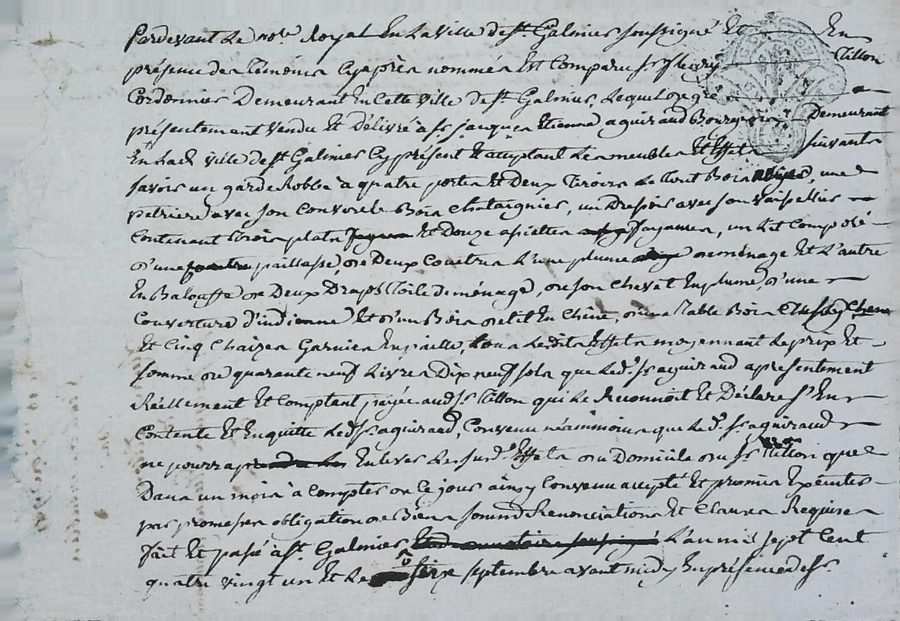 Pardevant Le nore Royal En La Ville de St Galmier soussigné Et En
présence des Témoins Cyaprès nommés Est Comparu sr fleury Tillon
Cordonnier Demeurant En Cette ville de St Galmier, Lequel de gré a
présentement Vendu Et Délivré a sr jacques Etienne aguiraud Bourgeois Demeurant
En lade ville de St Galmier Cy présent Et acceptant Les meubles Et Effets suivants
savoir un garderobbe à quatre portes Et Deux Tiroirs Le Tout Bois, une
petriere avec son Couvercle Bois Chataignier, un Dressoir avec son Vaisselier
Contenant trois plats Et Douze assiettes fayance, un Lit Composé
d'une paillasse, de Deux Couetres L'une plume de ménage Et L'autre
En Balouffe de Deux Draps Toile de ménage, de son Chevet En plume, d'une
Couverture d'indienne Et d'un Bois de lit En Chêne, d'une Table Bois Chene
Et Cinq Chaizes Garnies En paille, tous Lesdits Effets moyennant Le prix Et
somme de quarante neuf Livres Dix neuf sols que Led. sr aguiraud a présentement
Réellement Et Comptant payée aud. sr Tillon qui Le Reconnoit Et Déclare s'En
Contente Et En quitte Led. sr aguiraud, Convenu néammoins que Led. sr aguiraud
ne pourra Enlever Les susd. Effets du Domicile du sr Tillon que
Dans un mois à Compter de Ce jour ainsy Convenu accepté Et promis Exécuter
par promesses obligation de Biens soumnd Renonciations Et Clauses Requises
fait Et passé a St Galmier L'an mil sept Cent
quatre vingt un Et Le six septembre avant midy En présence de sr